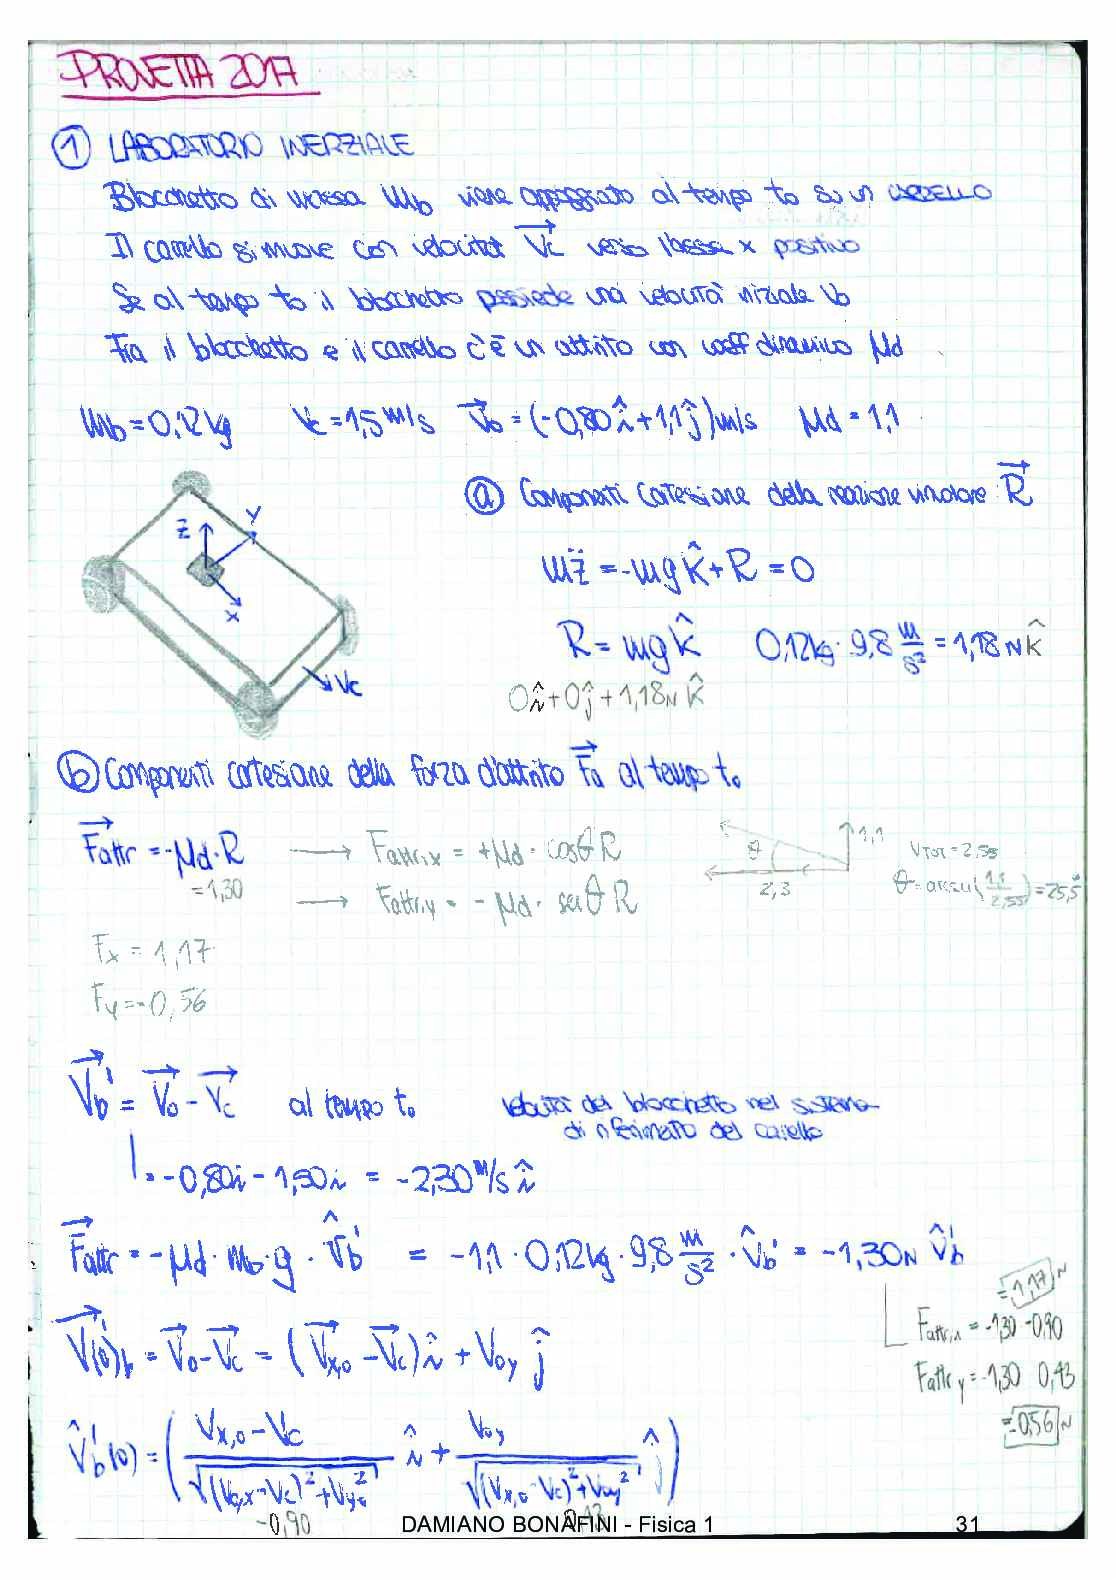 PROVETTA 2017
① LABORATORIO INERZIALE
Blocchetto di massa mb viene appoggiato al tempo to su un CARRELLO
Il carrello si muove con velocità Vc verso l'asse x positivo
Se al tempo to il blocchetto possiede una velocità iniziale Vo
Fra il blocchetto e il carrello c'è un attrito con coeff dinamico μd
mb = 0,12 kg Vc = 1,5 m/s V⃗o = (-0,80 î + 1,1 ĵ) m/s μd = 1,1
Z
Y
X
Vc
ⓐ Componenti cartesiane della reazione vincolare R⃗
m z̈ = -mg k̂ + R = 0
R = mg k̂ 0,12 kg · 9,8 m/s² = 1,18 N k̂
0 î + 0 ĵ + 1,18 N k̂
ⓑ Componenti cartesiane della forza d'attrito F⃗a al tempo to
F⃗attr = -μd · R → Fattr,x = +μd · cosθ R
= 1,30 → Fattr,y = - μd · senθ R
θ 2,3 1,1
VTOT = 2,55
θ = arcsen(1,1/2,55) = 25,5°
Fx = 1,17
Fy = -0,56
V⃗b' = V⃗o - V⃗c al tempo to velocità del blocchetto nel sistema
di riferimento del carrello
= -0,80i - 1,50i = -2,30 m/s î
F⃗attr = -μd · mb · g · V̂b' = -1,1 · 0,12 kg · 9,8 m/s² · V̂b' = -1,30 N V̂b'
Fattr,x = -1,30 -0,90
= 1,17 N
Fattr y = -1,30 0,43
= -0,56 N
V⃗(0)b' = V⃗o - V⃗c = (V⃗x,0 - V⃗c) î + Voy ĵ
V̂b'(0) = ( (Vx,0 - Vc) / √((V0,x - Vc)² + Vy,0²) î + Voy / √((Vx,0 - Vc)² + Voy²) ĵ )
-0,90
DAMIANO BONAFINI - Fisica 1 31